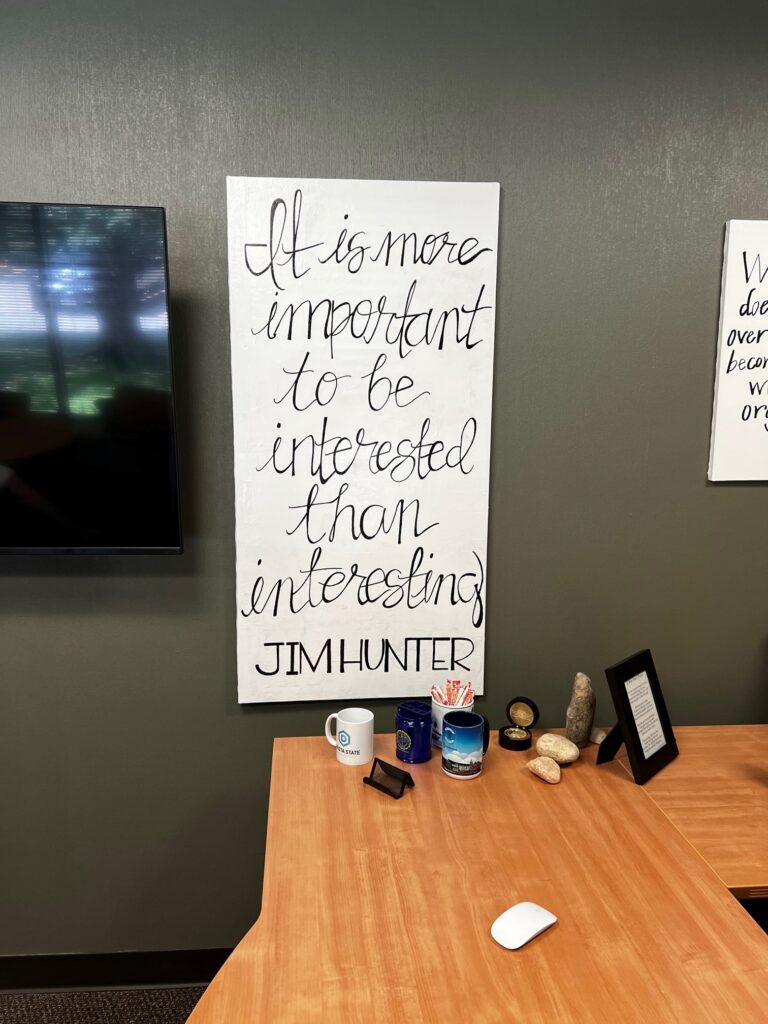 It is more
important
to be
interested
than
interesting
JIM HUNTER
W
doe
over
becom
w
org
STATE
C